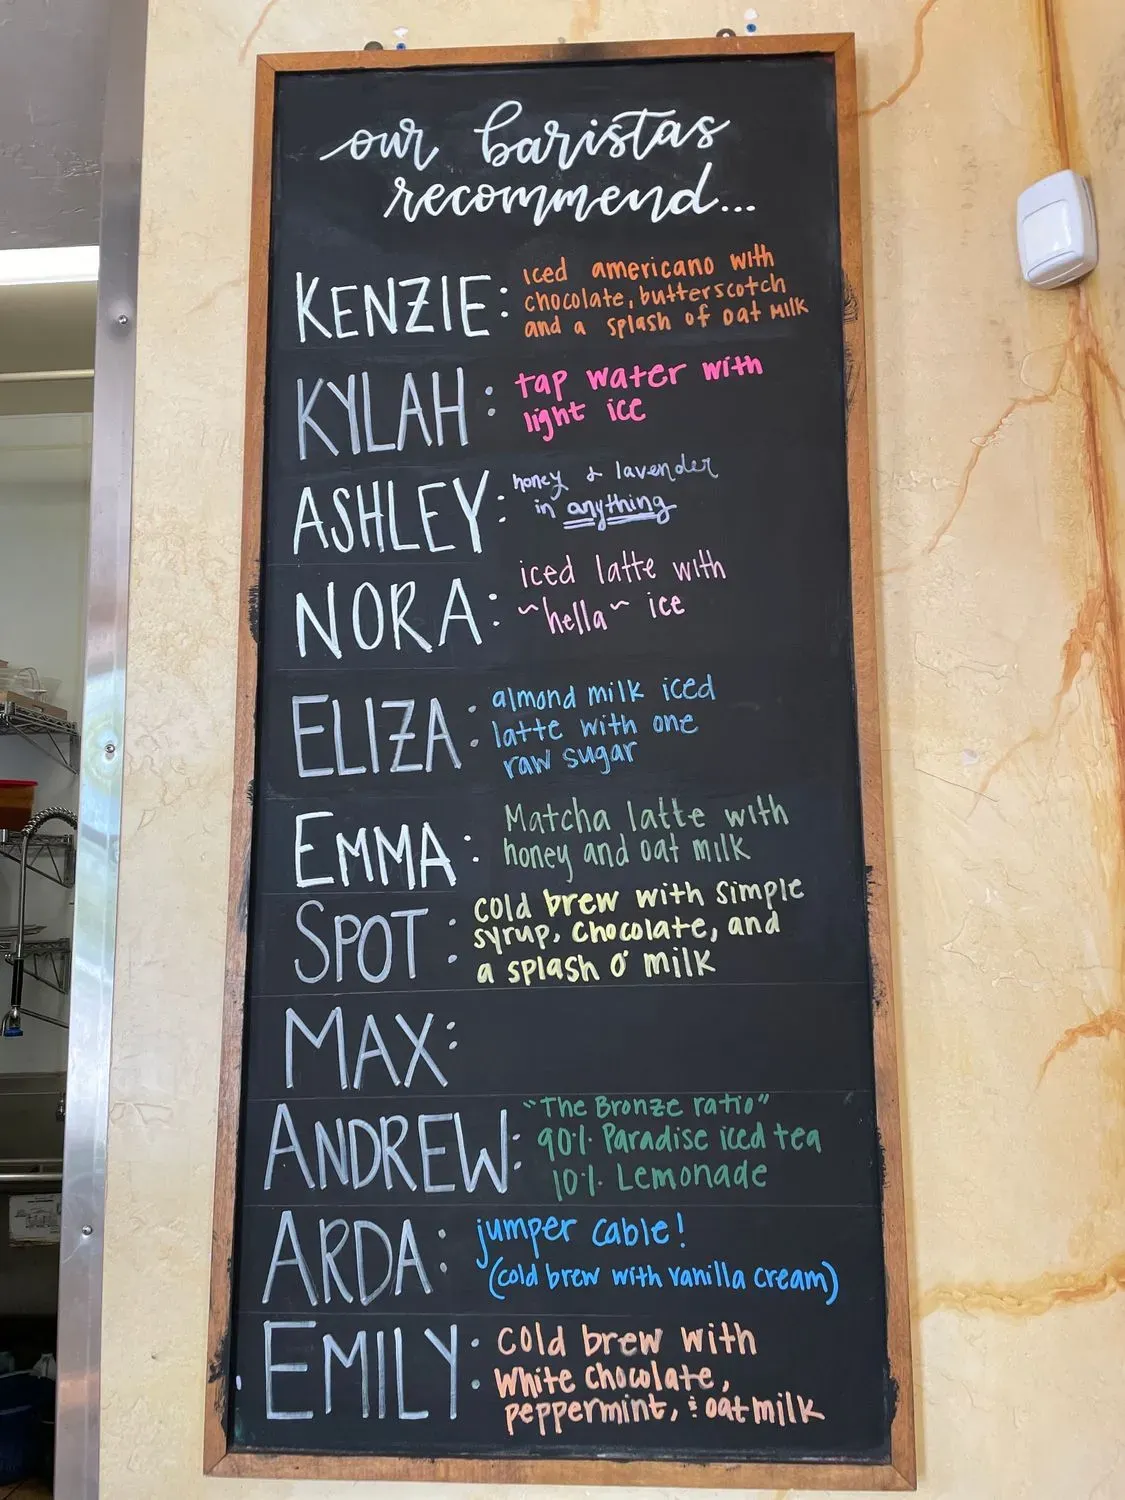 our baristas
recommend...
KENZIE: iced americano with
chocolate, butterscotch
and a splash of oat milk
KYLAH: tap water with
light ice
ASHLEY: honey & lavender
in anything
NORA: iced latte with
~hella~ ice
ELIZA: almond milk iced
latte with one
raw sugar
EMMA: Matcha latte with
honey and oat milk
SPOT: cold brew with simple
syrup, chocolate, and
a splash o' milk
MAX:
ANDREW: "The Bronze ratio"
90% Paradise iced tea
10% Lemonade
ARDA: jumper cable!
(cold brew with vanilla cream)
EMILY: cold brew with
white chocolate,
peppermint, & oat milk